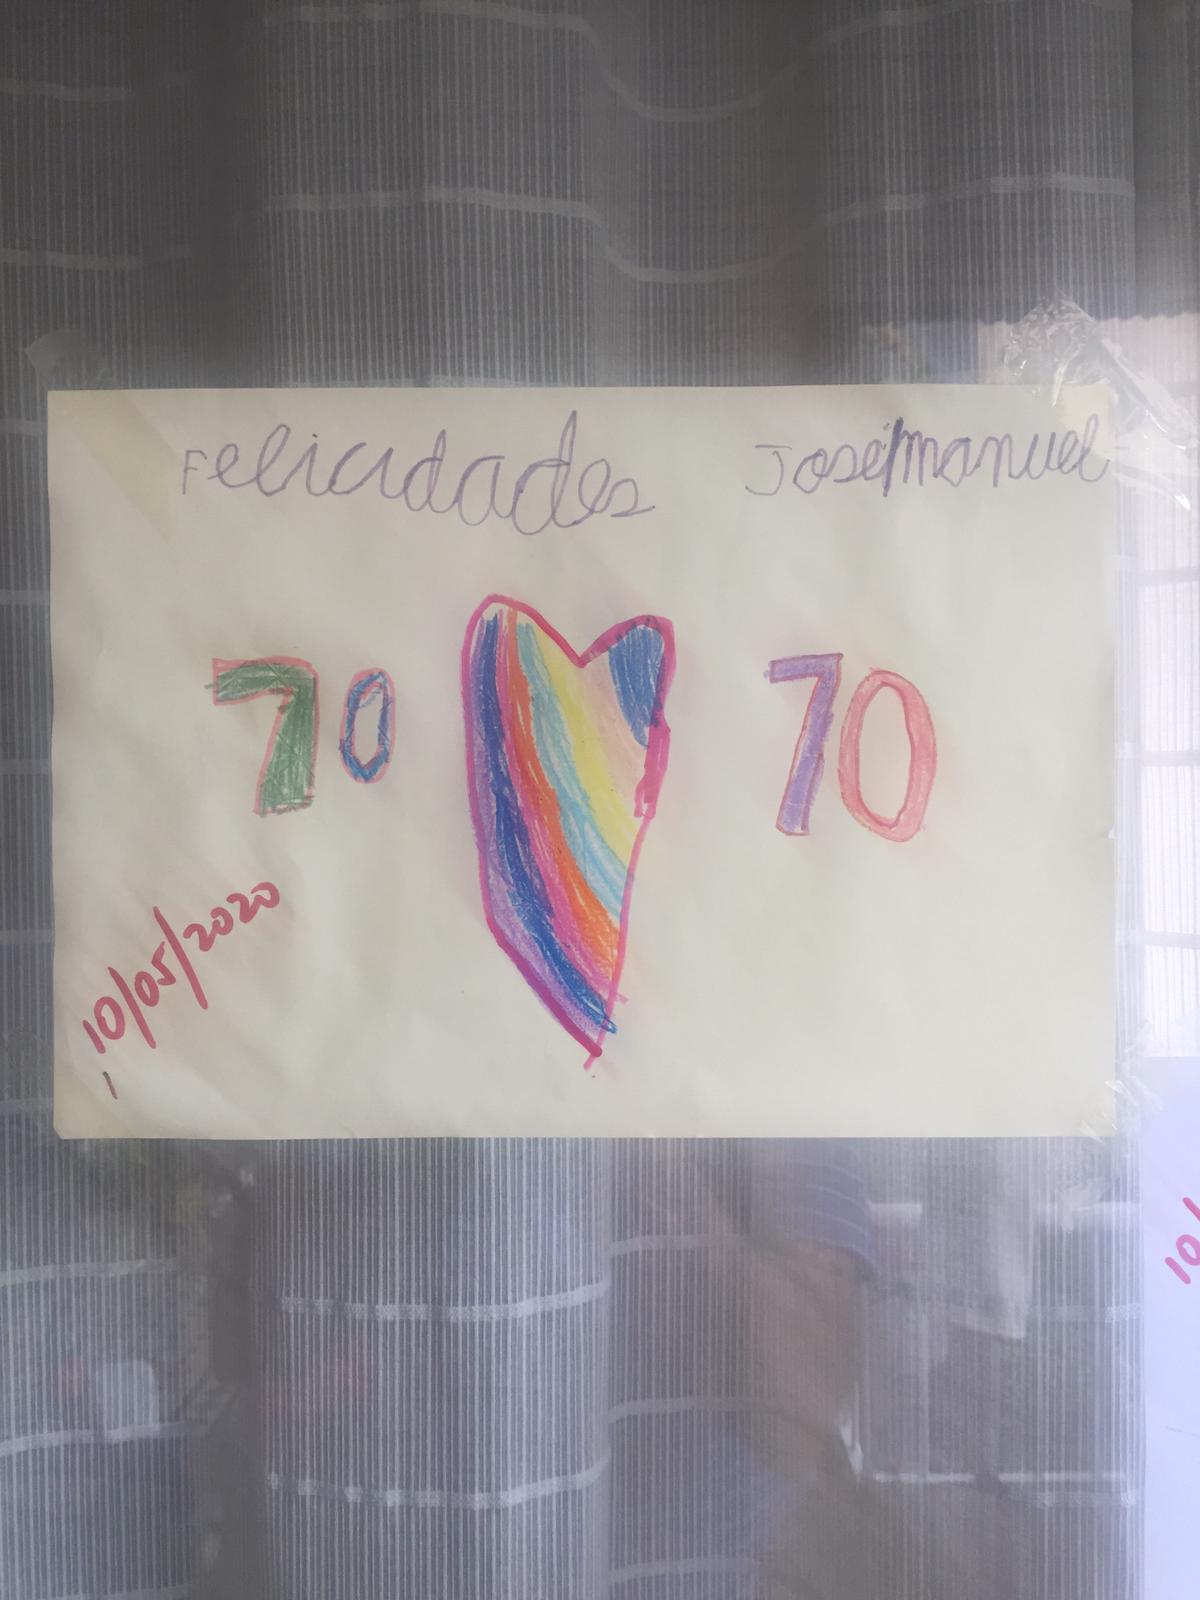 Felicidades José Manuel
70 70
10/05/2020
10/